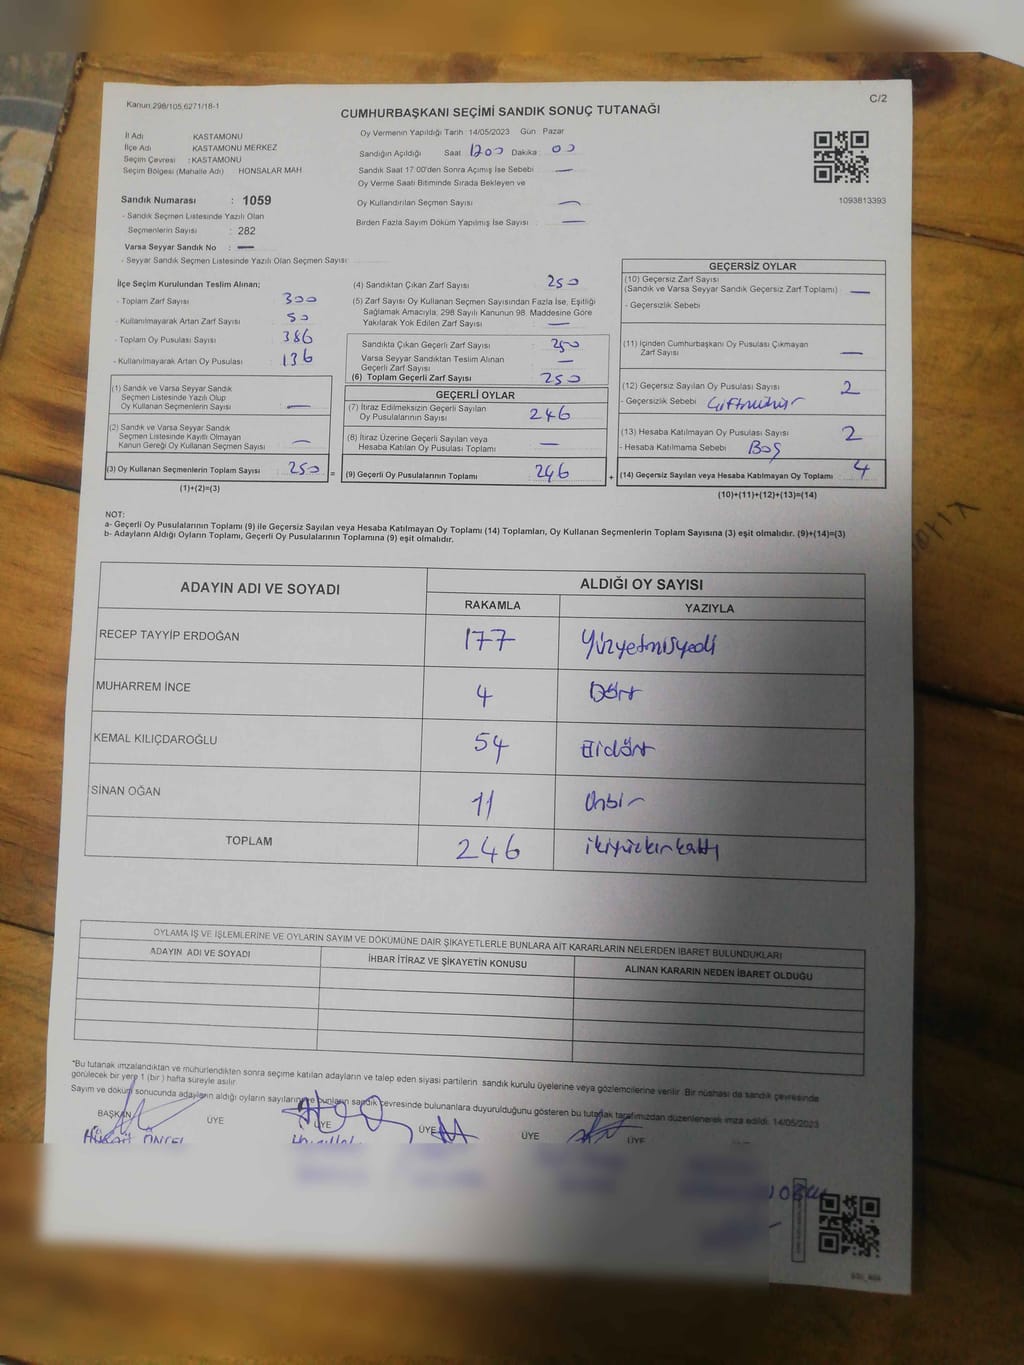 Kanun:298/105,6271/18-1
C/2
CUMHURBAŞKANI SEÇİMİ SANDIK SONUÇ TUTANAĞI
İl Adı : KASTAMONU
İlçe Adı : KASTAMONU MERKEZ
Seçim Çevresi : KASTAMONU
Seçim Bölgesi (Mahalle Adı) HONSALAR MAH
Sandık Numarası : 1059
- Sandık Seçmen Listesinde Yazılı Olan
Seçmenlerin Sayısı : 282
Varsa Seyyar Sandık No : —
- Seyyar Sandık Seçmen Listesinde Yazılı Olan Seçmen Sayısı:
Oy Vermenin Yapıldığı Tarih :14/05/2023 Gün : Pazar
Sandığın Açıldığı Saat 1700 Dakika : 00
Sandık Saat 17:00'den Sonra Açımış İse Sebebi —
Oy Verme Saati Bitiminde Sırada Bekleyen ve
Oy Kullandırılan Seçmen Sayısı —
Birden Fazla Sayım Döküm Yapılmış İse Sayısı : —
1093813393
İlçe Seçim Kurulundan Teslim Alınan;
- Toplam Zarf Sayısı : 300
- Kullanılmayarak Artan Zarf Sayısı : 50
- Toplam Oy Pusulası Sayısı : 386
- Kullanılmayarak Artan Oy Pusulası : 136
(1) Sandık ve Varsa Seyyar Sandık
Seçmen Listesinde Yazılı Olup
Oy Kullanan Seçmenlerin Sayısı : —
(2) Sandık ve Varsa Seyyar Sandık
Seçmen Listesinde Kayıtlı Olmayan
Kanun Gereği Oy Kullanan Seçmen Sayısı : —
(3) Oy Kullanan Seçmenlerin Toplam Sayısı : 250 =
(1)+(2)=(3)
(4) Sandıktan Çıkan Zarf Sayısı : 250
(5) Zarf Sayısı Oy Kullanan Seçmen Sayısından Fazla İse, Eşitliği
Sağlamak Amacıyla; 298 Sayılı Kanunun 98. Maddesine Göre
Yakılarak Yok Edilen Zarf Sayısı : —
Sandıkta Çıkan Geçerli Zarf Sayısı : 250
Varsa Seyyar Sandıktan Teslim Alınan
Geçerli Zarf Sayısı : —
(6) Toplam Geçerli Zarf Sayısı : 250
GEÇERLİ OYLAR
(7) İtiraz Edilmeksizin Geçerli Sayılan
Oy Pusulalarının Sayısı : 246
(8) İtiraz Üzerine Geçerli Sayılan veya
Hesaba Katılan Oy Pusulaları Toplamı : —
(9) Geçerli Oy Pusulalarının Toplamı : 246 +
GEÇERSİZ OYLAR
(10) Geçersiz Zarf Sayısı
(Sandık ve Varsa Seyyar Sandık Geçersiz Zarf Toplamı) : —
- Geçersizlik Sebebi
(11) İçinden Cumhurbaşkanı Oy Pusulası Çıkmayan
Zarf Sayısı : —
(12) Geçersiz Sayılan Oy Pusulası Sayısı : 2
- Geçersizlik Sebebi Çiftmühür
(13) Hesaba Katılmayan Oy Pusulası Sayısı : 2
- Hesaba Katılmama Sebebi : Boş
(14) Geçersiz Sayılan veya Hesaba Katılmayan Oy Toplamı : 4
(10)+(11)+(12)+(13)=(14)
NOT:
a- Geçerli Oy Pusulalarının Toplamı (9) ile Geçersiz Sayılan veya Hesaba Katılmayan Oy Toplamı (14) Toplamları, Oy Kullanan Seçmenlerin Toplam Sayısına (3) eşit olmalıdır. (9)+(14)=(3)
b- Adayların Aldığı Oyların Toplamı, Geçerli Oy Pusulalarının Toplamına (9) eşit olmalıdır.
ADAYIN ADI VE SOYADI ALDIĞI OY SAYISI
RAKAMLA YAZIYLA
RECEP TAYYİP ERDOĞAN 177 Yüzyetmişyedi
MUHARREM İNCE 4 Dört
KEMAL KILIÇDAROĞLU 54 Ellidört
SİNAN OĞAN 11 Onbir
TOPLAM 246 ikiyüzkırkaltı
OYLAMA İŞ VE İŞLEMLERİNE VE OYLARIN SAYIM VE DÖKÜMÜNE DAİR ŞİKAYETLERLE BUNLARA AİT KARARLARIN NELERDEN İBARET BULUNDUKLARI
ADAYIN ADI VE SOYADI İHBAR İTİRAZ VE ŞİKAYETİN KONUSU ALINAN KARARIN NEDEN İBARET OLDUĞU
*Bu tutanak imzalandıktan ve mühürlendikten sonra seçime katılan adayların ve talep eden siyasi partilerin sandık kurulu üyelerine veya gözlemcilerine verilir. Bir nüshası da sandık çevresinde
görülecek bir yere 1 (bir) hafta süreyle asılır.
Sayım ve döküm sonucunda adayların aldığı oyların sayılarının ve bunların sandık çevresinde bulunanlara duyurulduğunu gösteren bu tutanak tarafımızdan düzenlenerek imza edildi. 14/05/2023
BAŞKAN ÜYE ÜYE ÜYE ÜYE ÜYE
ÖNCEL